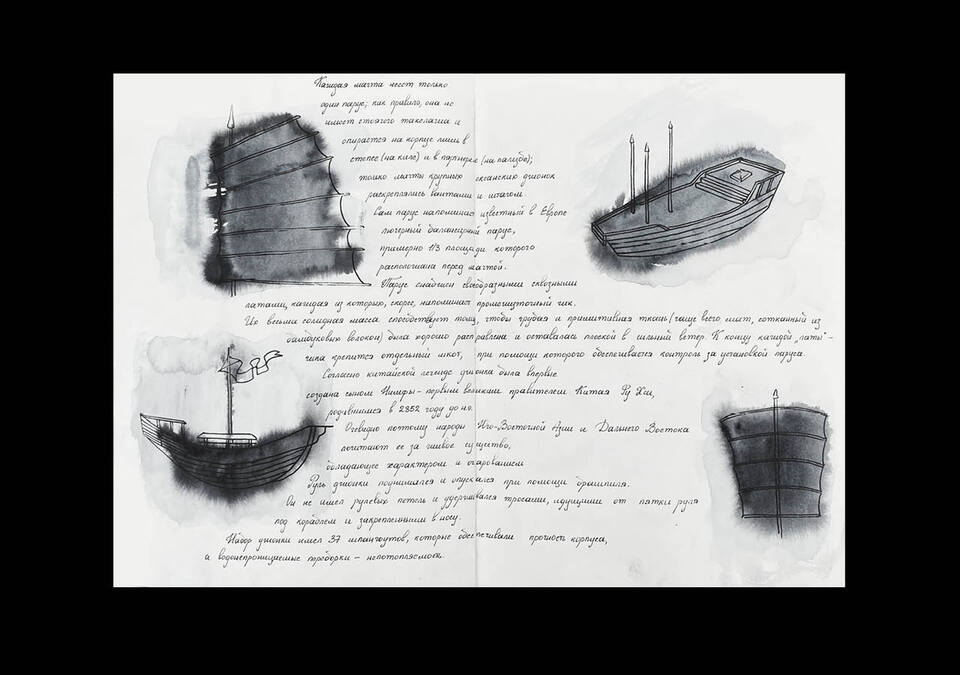 Каждая мачта несет только
один парус; как правило, она не
имеет стоячего такелажа и
опирается на корпус лишь в
степсе (на киле) и в пяртнерсе (на палубе);
только мачты крупных океанских джонок
раскреплялись вантами и штагом.
Сам парус напоминает известный в Европе
люгерный балансирный парус,
примерно 1/3 площади которого
расположена перед мачтой.
Парус снабжен своеобразными сквозными
латами, каждая из которых, скорее, напоминает промежуточный гик.
Их весьма солидная масса способствует тому, чтобы грубая и примитивная ткань (чаще всего мат, сотканный из
бамбуковых волокон) была хорошо расправлена и оставалась плоской в сильный ветер. К концу каждой „латы"-
гика крепится отдельный шкот, при помощи которого обеспечивается контроль за установкой паруса.
Согласно китайской легенде джонка была впервые
создана сыном Нимфы - первым великим правителем Китая Фу Хси,
родившимся в 2852 году до н.э.
Очевидно поэтому народы Юго-Восточной Азии и Дальнего Востока
почитают ее за живое существо,
обладающее характером и очарованием
Руль джонки поднимался и опускался при помощи брашпиля.
Он не имел рулевых петель и удерживался тросами, идущими от пятки руля
под кораблем и закрепленными в носу.
Набор джонки имел 37 шпангоутов, которые обеспечивали прочность корпуса,
а водонепроницаемые переборки - непотопляемость.